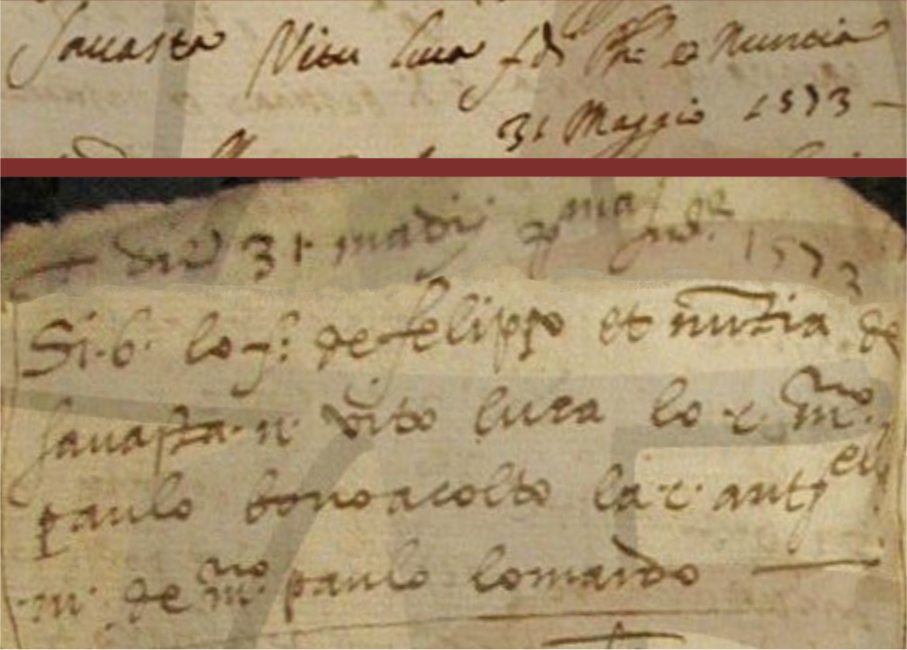 Savasta Vitu Luca f. di Ph: et Nuncia
31 Maggio 1573
die 31 madij p.ᵐᵃ ind.ᵉ 1573
Si·b· lo f: de felippo et nuzia de
savasta·n· vito luca lo·c· m.ʳᵒ
paulo bonoacolto la·c· ant
m· de m.ʳᵒ paulo lomardo